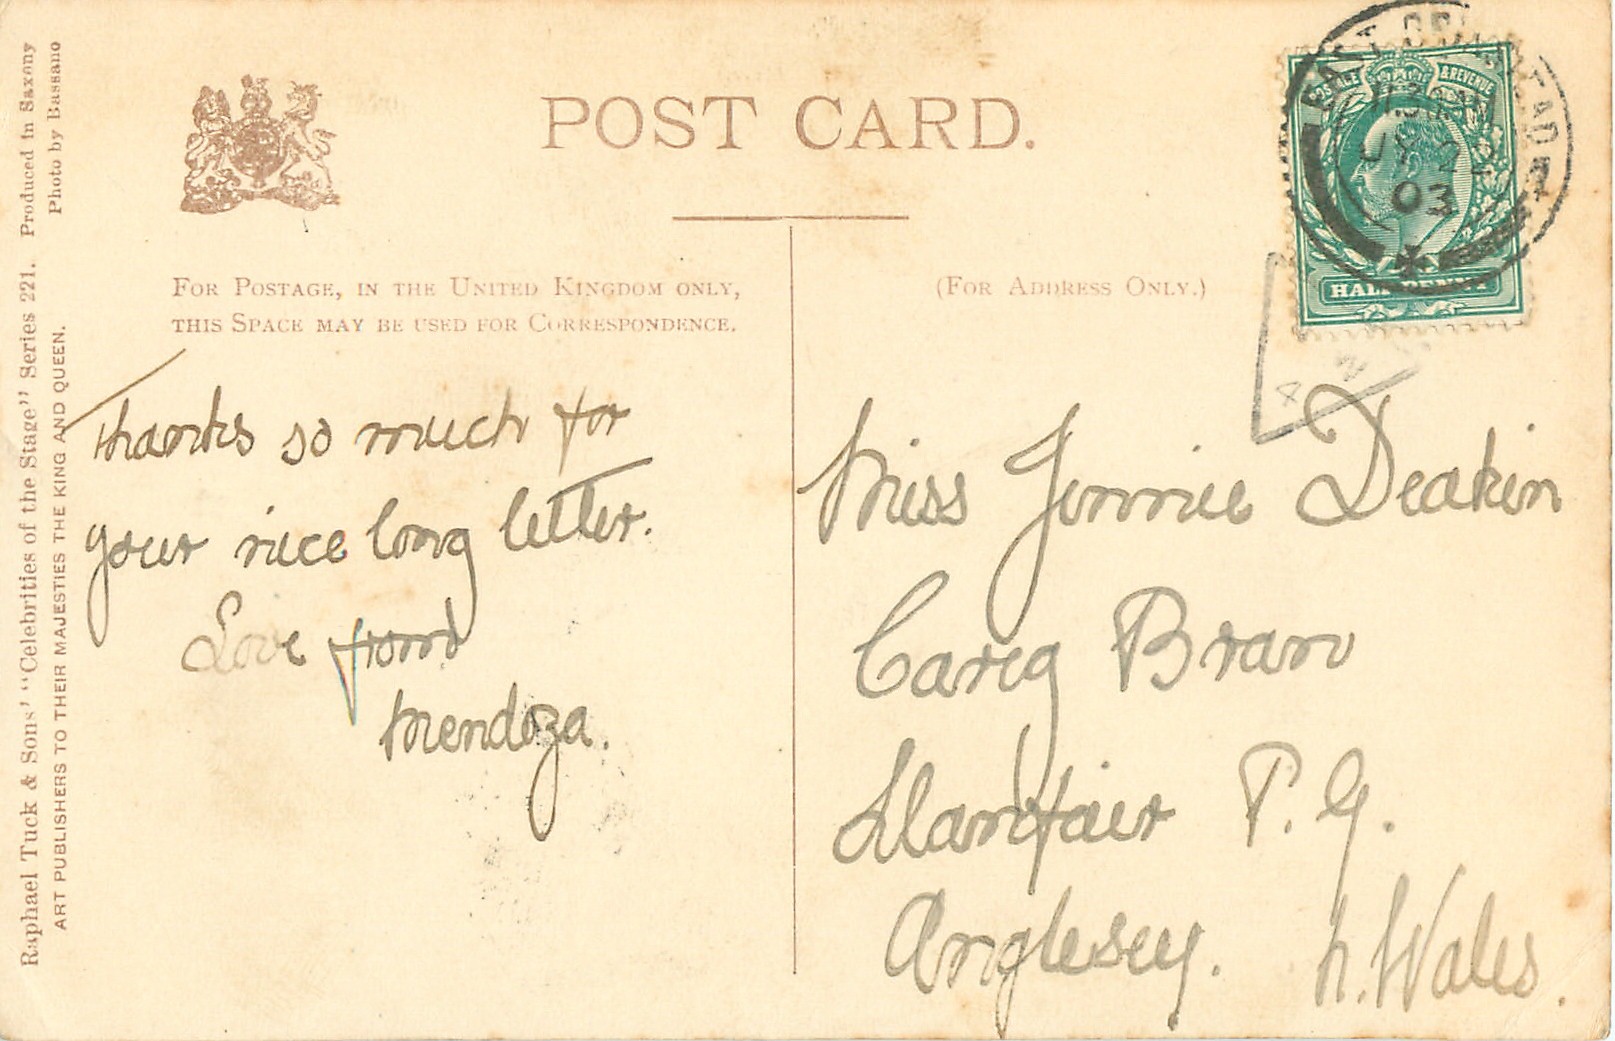 POST CARD.
FOR POSTAGE, IN THE UNITED KINGDOM ONLY,
THIS SPACE MAY BE USED FOR CORRESPONDENCE.
(FOR ADDRESS ONLY.)
Raphael Tuck & Sons' "Celebrities of the Stage" Series 221. Produced in Saxony
ART PUBLISHERS TO THEIR MAJESTIES THE KING AND QUEEN. Photo by Bassano
Thanks so much for
your nice long letter.
Love from
Mendoza.
POSTAGE & REVENUE
HALFPENNY
EAST GRINSTEAD
11.30AM
JY 22
03
Miss Jennie Deakin
Careg Bran
Llanfair P. G.
Anglesey. N. Wales.